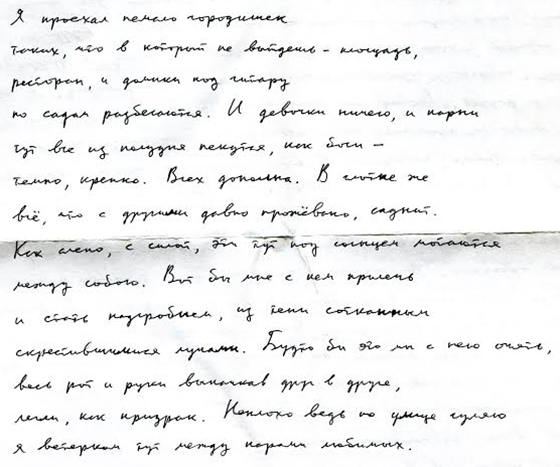 Я проехал немало городишек
таких, что в который не выйдешь – площадь,
ресторан, и домики под гитару
по садам разбегаются. И девочки ничего, и парни
тут все из полудня пекутся, как боги –
темно, крепко. Всех дополна. В глотке же
всё, что с другими давно прожёвано, саднит.
Как слепо, с слюной, эти тут под солнцем мотаются
между собою. Вот бы мне с кем прилечь
и стать надгробием, из тени сотканным
скрестившимися лучами. Будто бы это мы с него опять,
весь рот и руки выпачкав друг в друге,
легли, как призрак. Неплохо ведь по улице гуляю
я ветерком тут между парами любимых.